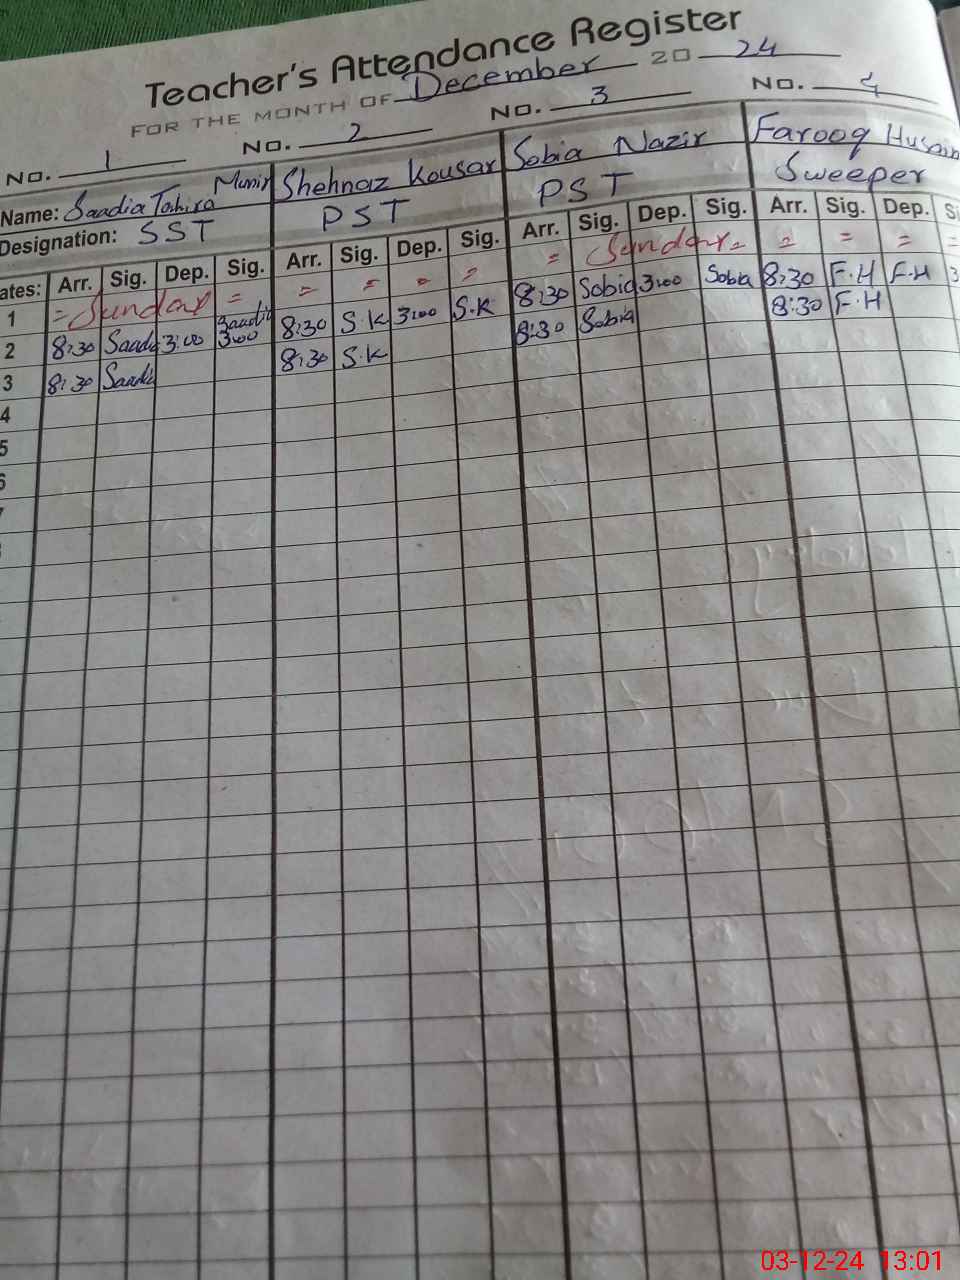 Teacher's Attendance Register
FOR THE MONTH OF December 20 24
No. 1 No. 2 No. 3 No. 4
Name: Saadia Tahira Munir Shehnaz Kousar Sobia Nazir Farooq Husain
Designation: SST PST PST Sweeper
ates: Arr. Sig. Dep. Sig. Arr. Sig. Dep. Sig. Arr. Sig. Dep. Sig. Arr. Sig. Dep. Si
1 = Sunday = = = = = = Sunday = = = = =
2 8:30 Saadia 3:00 Saadia 3:00 8:30 S.K 3:00 S.K 8:30 Sobia 3:00 Sobia 8:30 F.H F.H 3
3 8:30 Saadia 8:30 S.K 8:30 Sobia 8:30 F.H
4
5
6
7
03-12-24 13:01